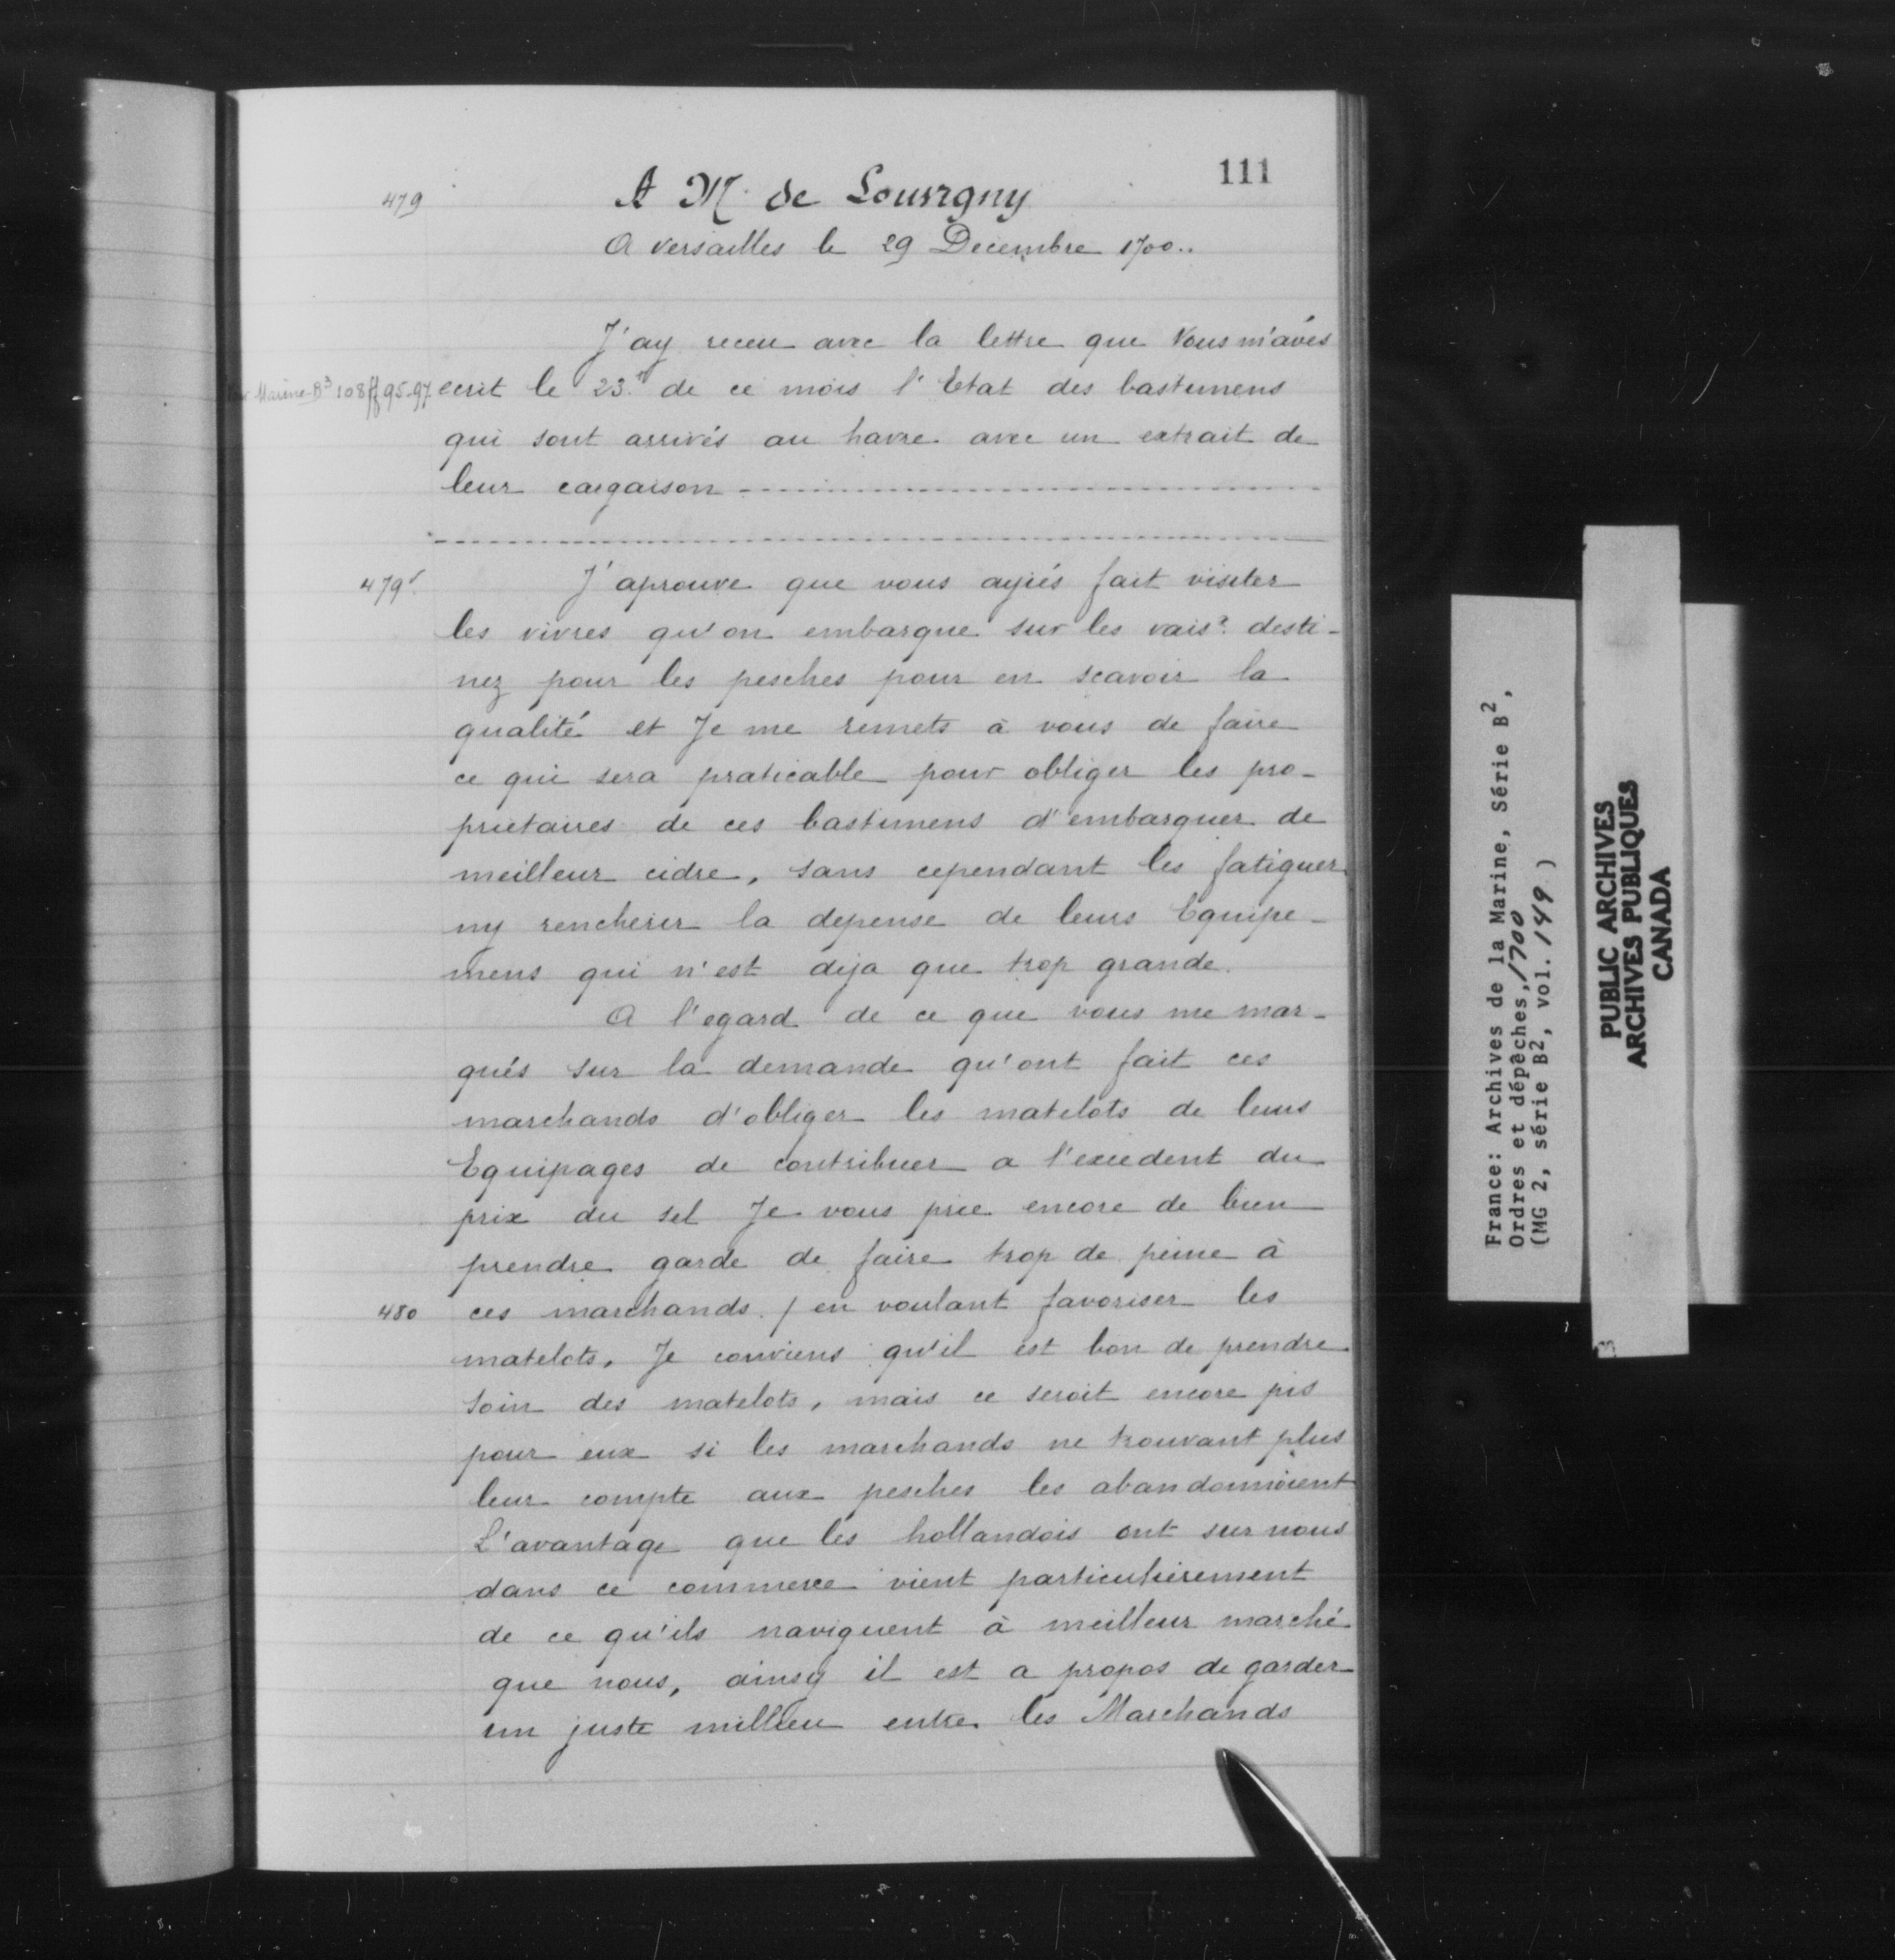 111
479 A M. de Louvigny
A Versailles le 29 Decembre 1700..
J'ay receu avec la lettre que Vous m'avés
Marine B3 108 ff 95-97 ecrit le 23e de ce mois l'Etat des bastimens
qui sont arrivés au havre avec un extrait de
leur cargaison
479v J'aprouve que vous ayiés fait visiter
les vivres qu'on embarque sur les vaisx desti-
nez pour les pesches pour en scavoir la
qualité et Je me remets à vous de faire
ce qui sera praticable pour obliger les pro-
prietaires de ces bastimens d'embarquer de
meilleur cidre, sans cependant les fatiguer
ny rencherir la depense de leurs Equipe-
mens qui n'est deja que trop grande.
A l'egard de ce que vous me mar-
qués sur la demande qu'ont fait ces
marchands d'obliger les matelots de leurs
Equipages de contribuer a l'excedent du
prix du sel Je vous prie encore de bien
prendre garde de faire trop de peine à
480 ces marchands / en voulant favoriser les
matelots. Je conviens qu'il est bon de prendre
soin des matelots, mais ce seroit encore pis
pour eux si les marchands ne trouvant plus
leur compte aux pesches les abandonnoient
L'avantage que les hollandois ont sur nous
dans ce commerce vient particulierement
de ce qu'ils naviguent à meilleur marché
que nous, ainsy il est a propos de garder
un juste millieu entre les Marchands
France: Archives de la Marine, Série B2,
Ordres et dépêches, 1700
(MG 2, série B2, vol. 149 )
PUBLIC ARCHIVES
ARCHIVES PUBLIQUES
CANADA
3